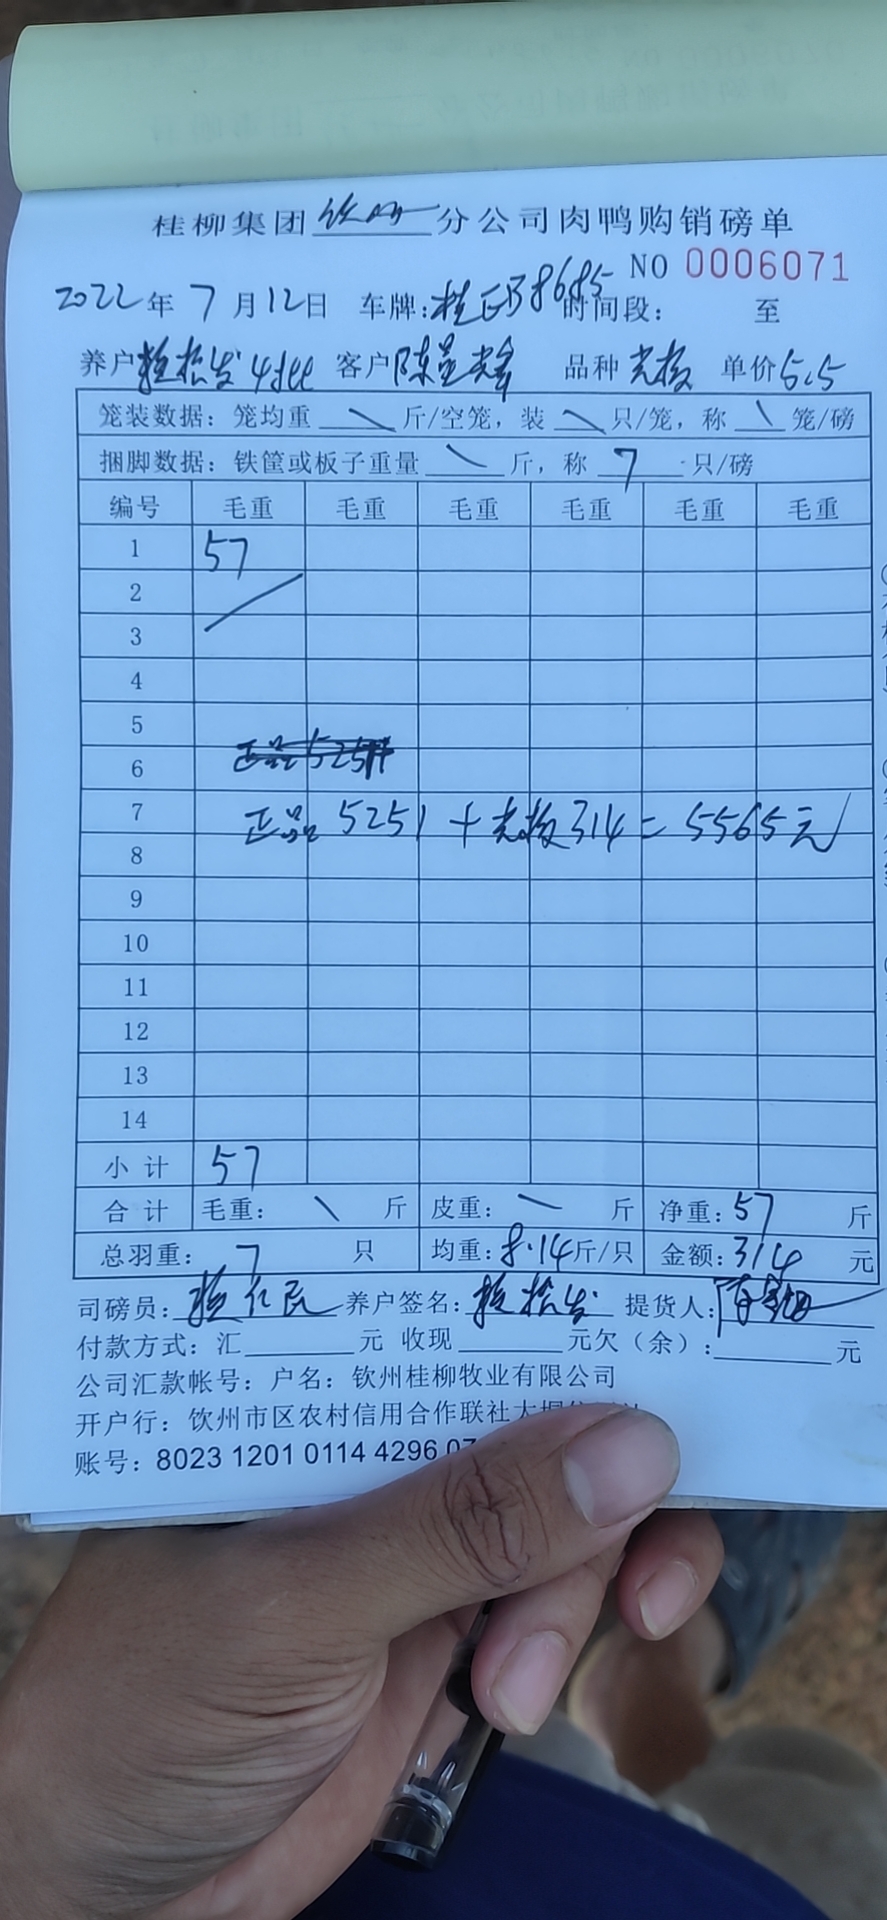 桂柳集团钦州分公司肉鸭购销磅单
NO 0006071
2022年7月12日 车牌:桂E 8685 时间段: 至
养户 客户陈 品种 单价5.5
笼装数据:笼均重 \ 斤/空笼,装 \ 只/笼,称 \ 笼/磅
捆脚数据:铁筐或板子重量 \ 斤,称 7 只/磅
编号 毛重 毛重 毛重 毛重 毛重 毛重
1 57
2
3
4
5
6 正品525
7 正品 5251 + 314 = 5565元
8
9
10
11
12
13
14
小计 57
合计 毛重: \ 斤 皮重: \ 斤 净重:57 斤
总羽重: 7 只 均重:8.14斤/只 金额:314 元
司磅员: 仁民 养户签名: 提货人:
付款方式:汇 元 收现 元欠(余): 元
公司汇款帐号:户名:钦州桂柳牧业有限公司
开户行:钦州市区农村信用合作联社大
账号:8023 1201 0114 4296 07